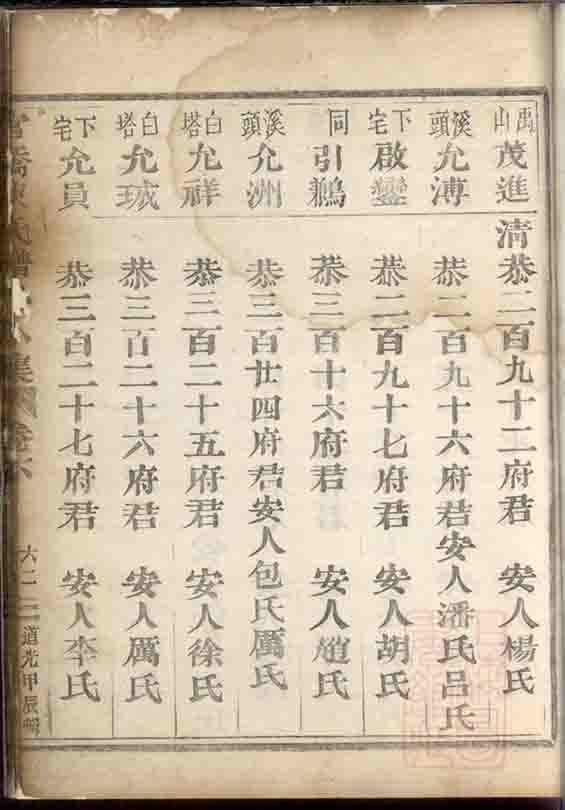 禹山 茂進 清恭二百九十二府君 安人楊氏
溪頭 允溥 恭二百九十六府君安人潘氏呂氏
下宅 啟鑾 恭二百九十七府君 安人胡氏
同 引鵜 恭三百十六府君 安人趙氏
溪頭 允洲 恭三百廿四府君安人包氏厲氏
白塔 允祥 恭三百二十五府君 安人徐氏
白塔 允珹 恭三百二十六府君 安人厲氏
下宅 允員 恭三百二十七府君 安人李氏
橋 氏譜 集 卷六 六二 道光甲辰